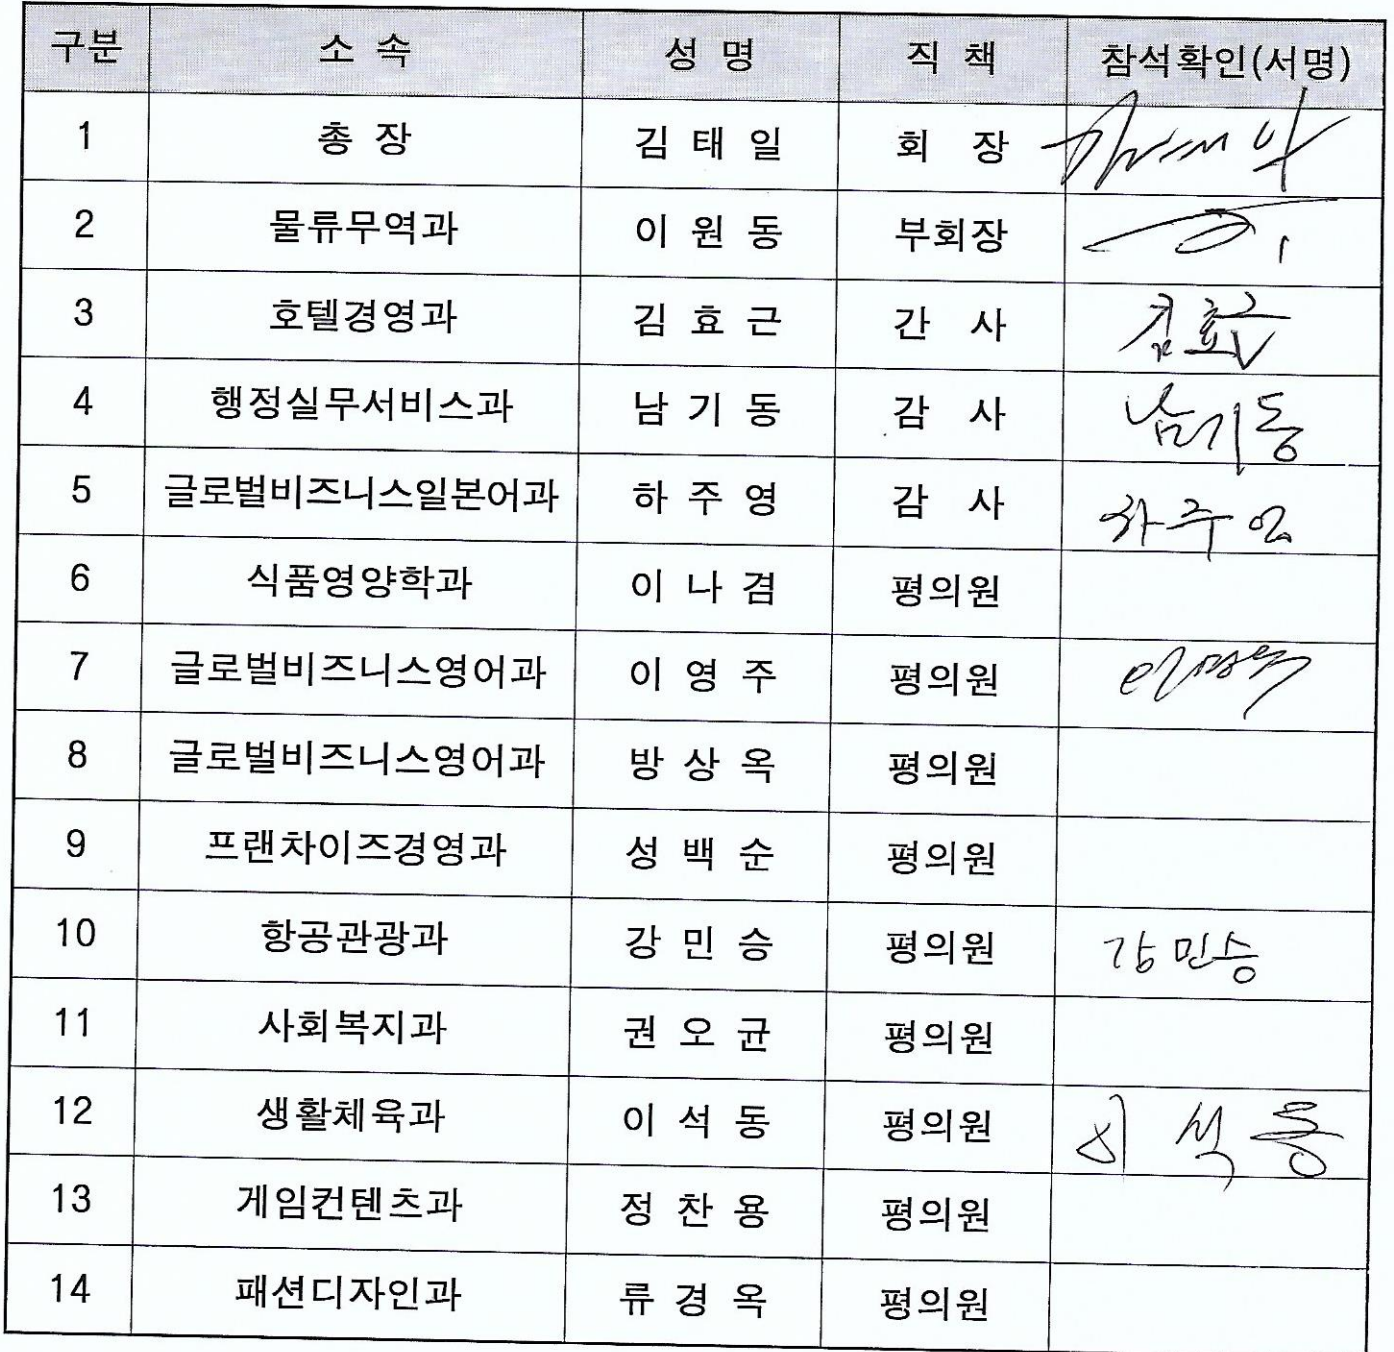 구분 소 속 성 명 직 책 참석확인(서명)
1 총 장 김 태 일 회 장
2 물류무역과 이 원 동 부회장
3 호텔경영과 김 효 근 간 사 김효근
4 행정실무서비스과 남 기 동 감 사 남기동
5 글로벌비즈니스일본어과 하 주 영 감 사 하주영
6 식품영양학과 이 나 겸 평의원
7 글로벌비즈니스영어과 이 영 주 평의원 이영주
8 글로벌비즈니스영어과 방 상 옥 평의원
9 프랜차이즈경영과 성 백 순 평의원
10 항공관광과 강 민 승 평의원 강민승
11 사회복지과 권 오 균 평의원
12 생활체육과 이 석 동 평의원 이 석 동
13 게임컨텐츠과 정 찬 용 평의원
14 패션디자인과 류 경 옥 평의원